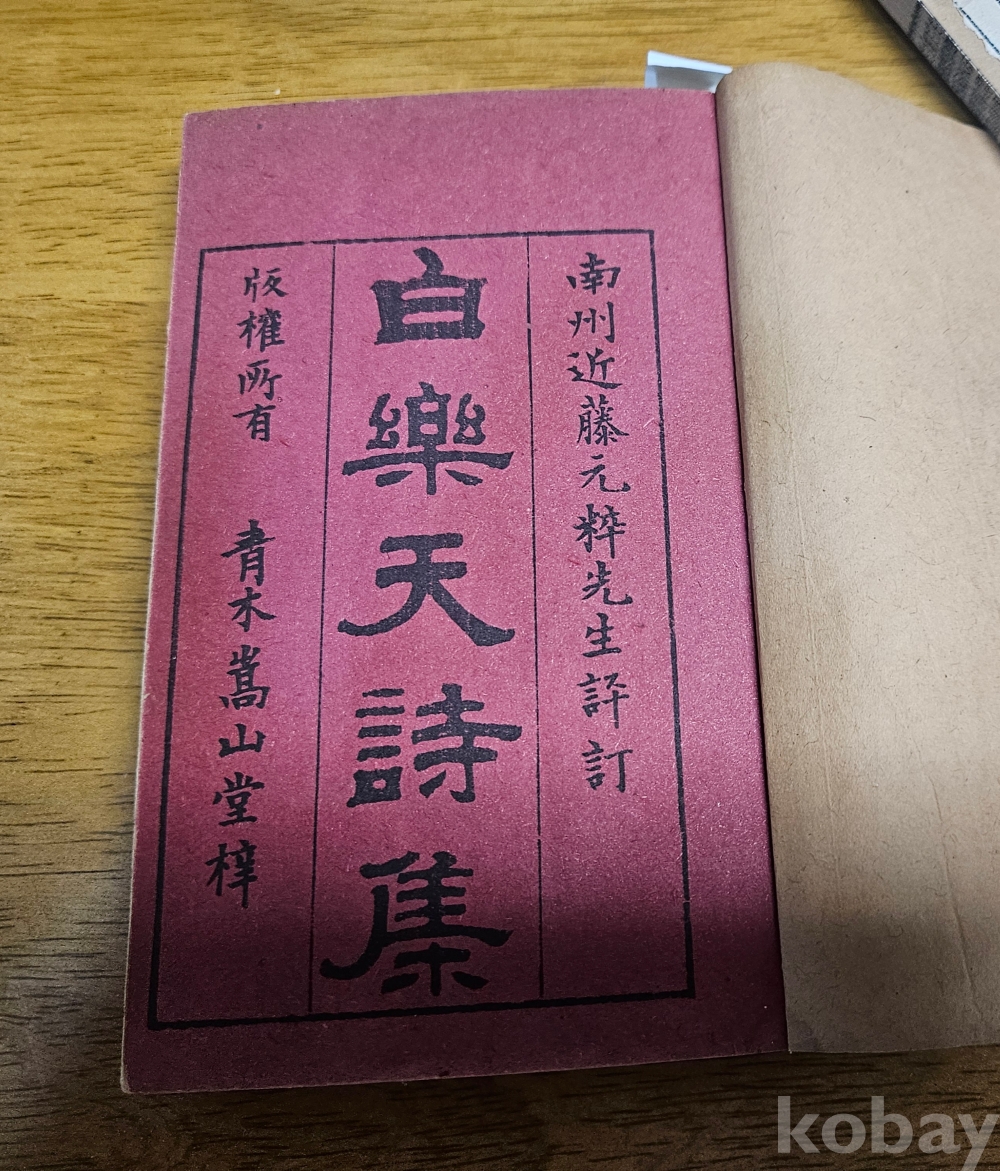 南州近藤元粹先生評訂
白樂天詩集
版權所有 青木嵩山堂梓
kobay